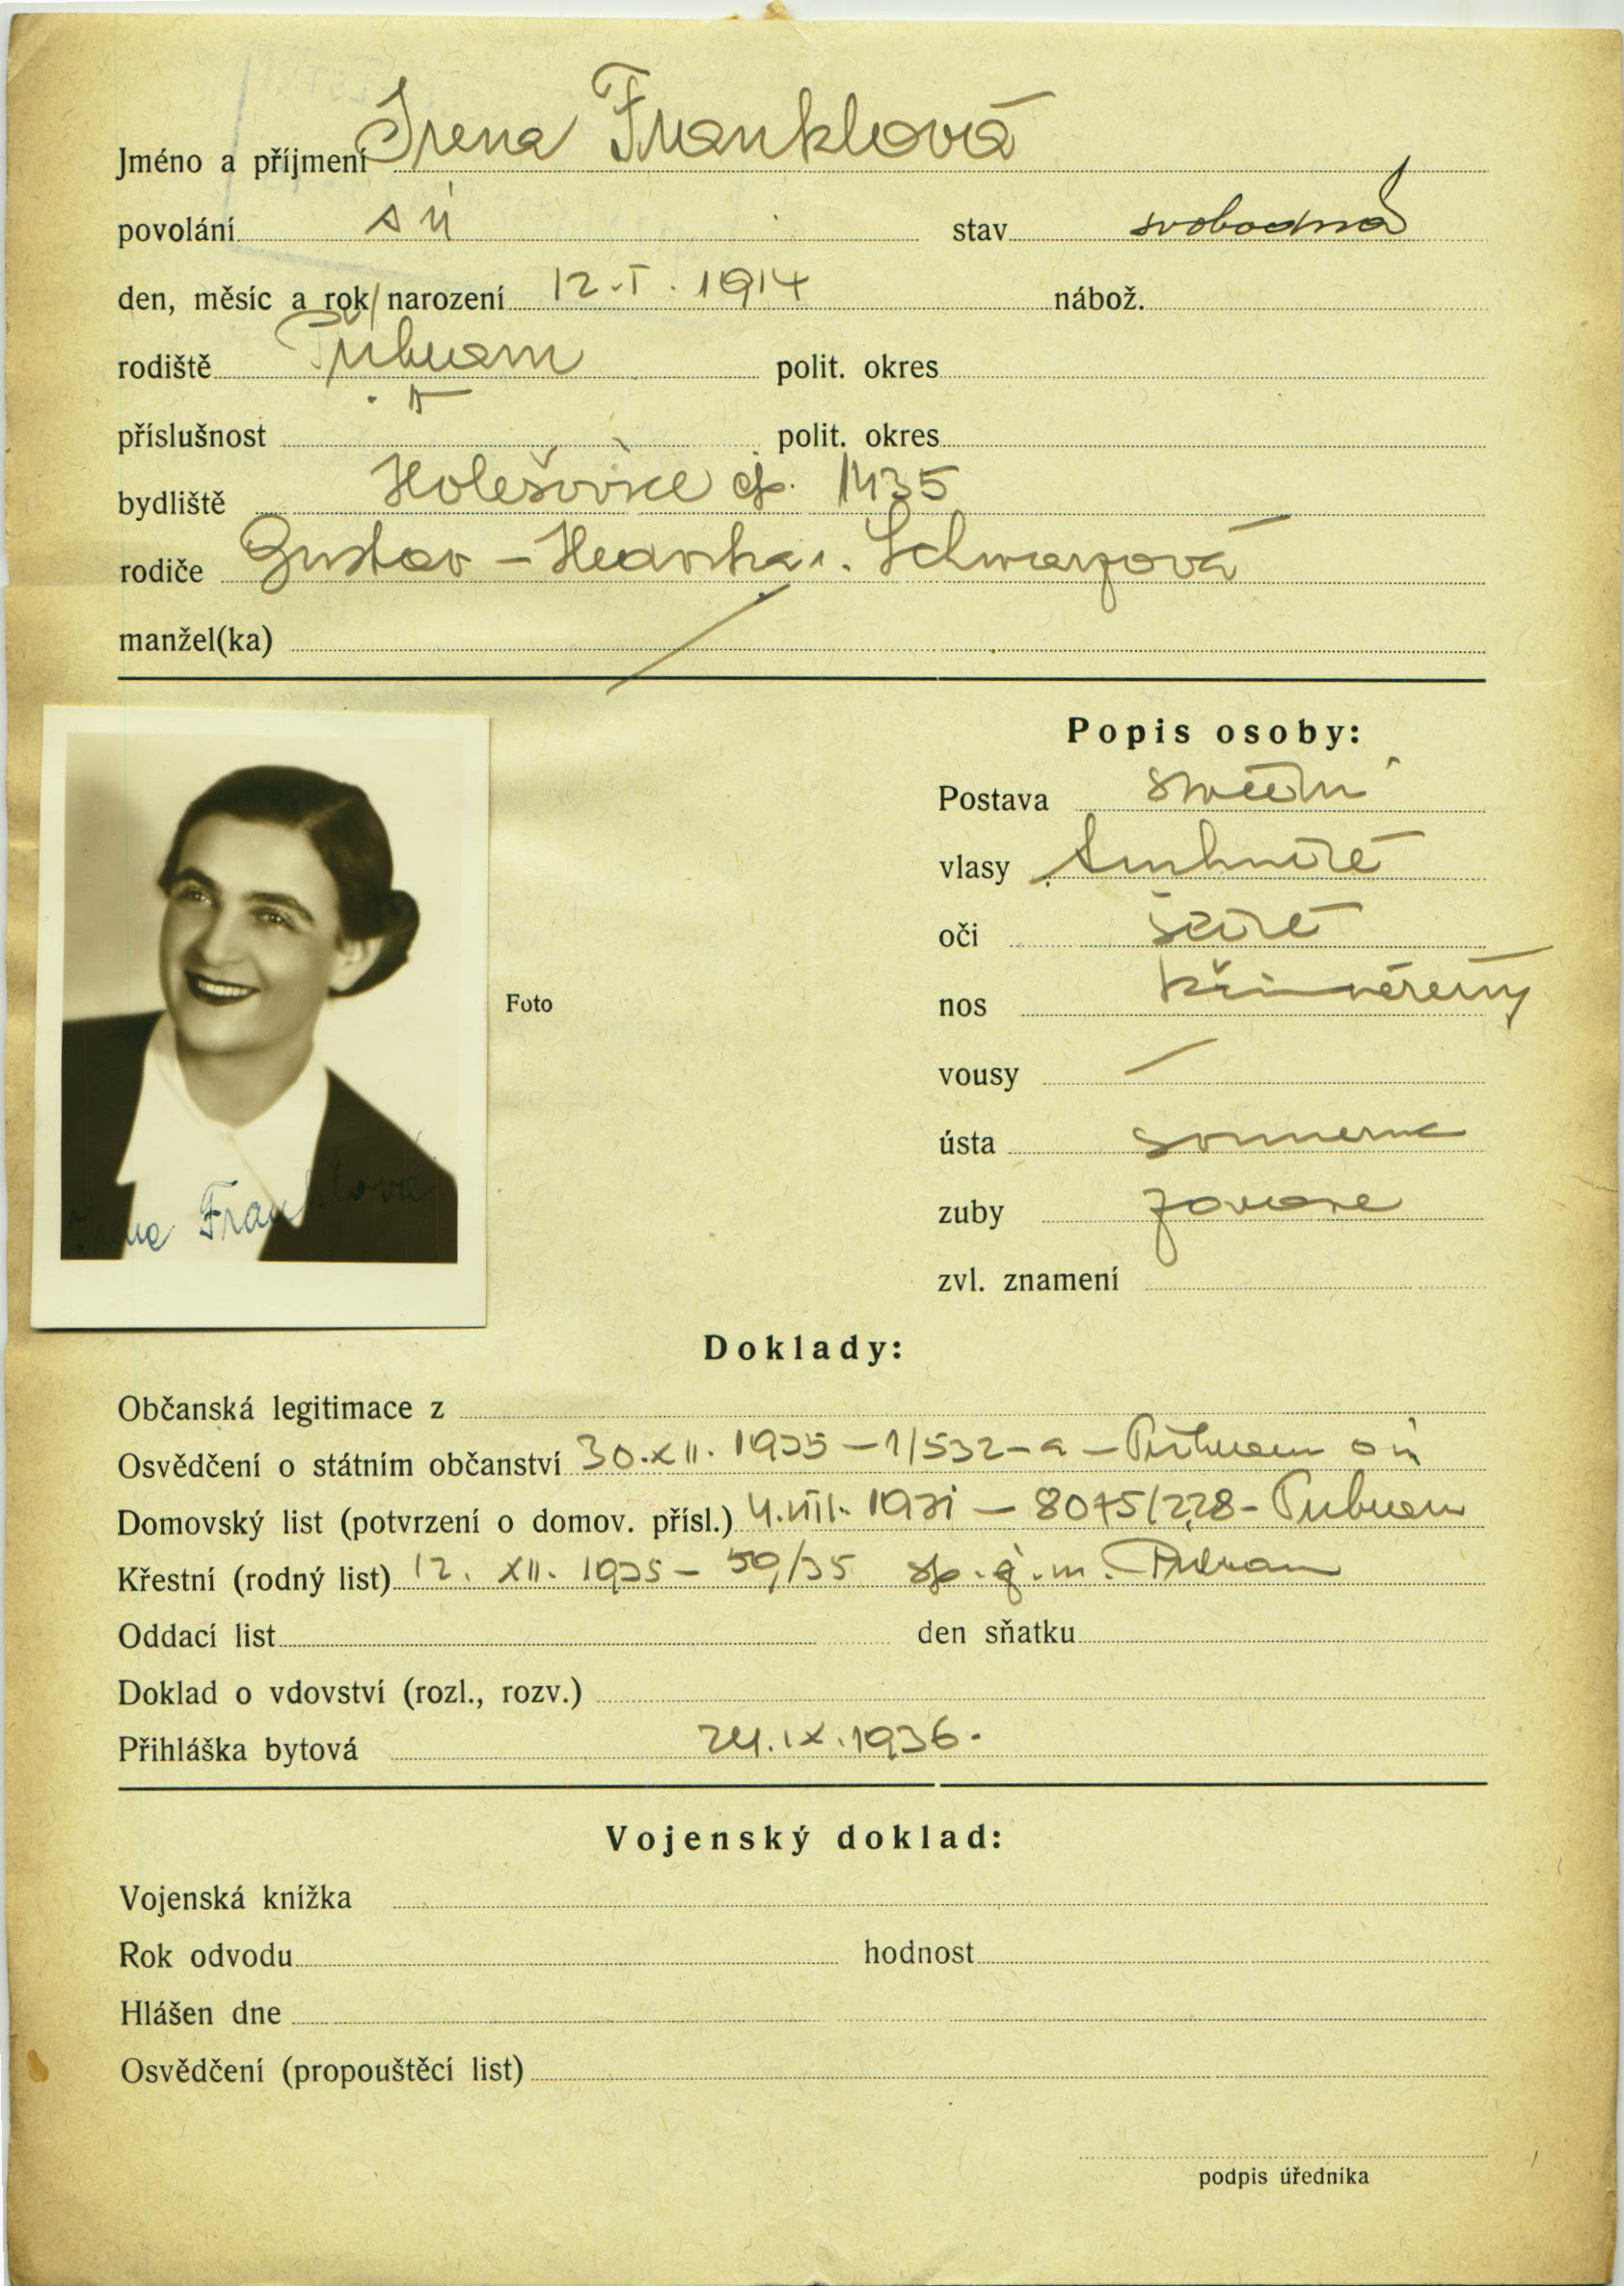 Jméno a příjmení Irena Franklová
povolání sú stav svobodná
den, měsíc a rok narození 12.I. 1914 nábož.
rodiště Příbram polit. okres
příslušnost polit. okres
bydliště Holešovice čp. 1435
rodiče Gustav – Hedvika r. Schwarzová
manžel(ka)
Popis osoby:
Postava střední
vlasy tmhnědé
oči šedé
nos přiměřený
vousy —
ústa souměrné
zuby zdravé
zvl. znamení
Foto
Irena Franklová
Doklady:
Občanská legitimace z
Osvědčení o státním občanství 30.XII. 1935 – 1/532-a – Příbram oú
Domovský list (potvrzení o domov. přísl.) 4.VIII. 1931 – 8075/228 – Příbram
Křestní (rodný list) 12. XII. 1935 – 59/35 Příbram
Oddací list den sňatku
Doklad o vdovství (rozl., rozv.)
Přihláška bytová 24.IX.1936.
Vojenský doklad:
Vojenská knížka
Rok odvodu hodnost
Hlášen dne
Osvědčení (propouštěcí list)
podpis úředníka